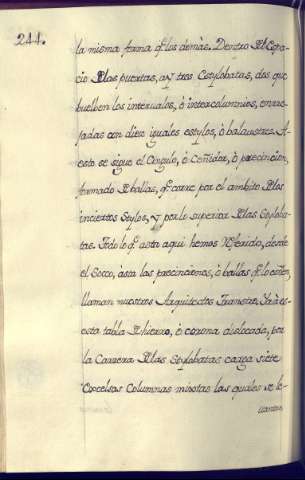 244.
la misma forma q.e los demàs. Dentro del Espa-
cio de las puertas, ay tres Estylobatas, dos que
buelben los interualos, ò intercolumnios, enrre-
jadas con diez iguales estylos, ò balaustres. A
esto se sigue el Cingulo, ò Ceñidor, ò precincion,
formado de ballas, q.e corre por el ambito de los
inciertos Stylos, y por lo superior de las Estyloba-
tas. Todo lo q.e asta aqui hemos referido, desde
el Socco, àsta las precinciones, ò ballas q.e lo ciñen,
llaman nuestros Arquitectos
esta tabla de hierro, ò corona dislocada, por
la Carrera de las Stylobatas carga siete
Excelsas Columnas ministas las quales se le-
uantan